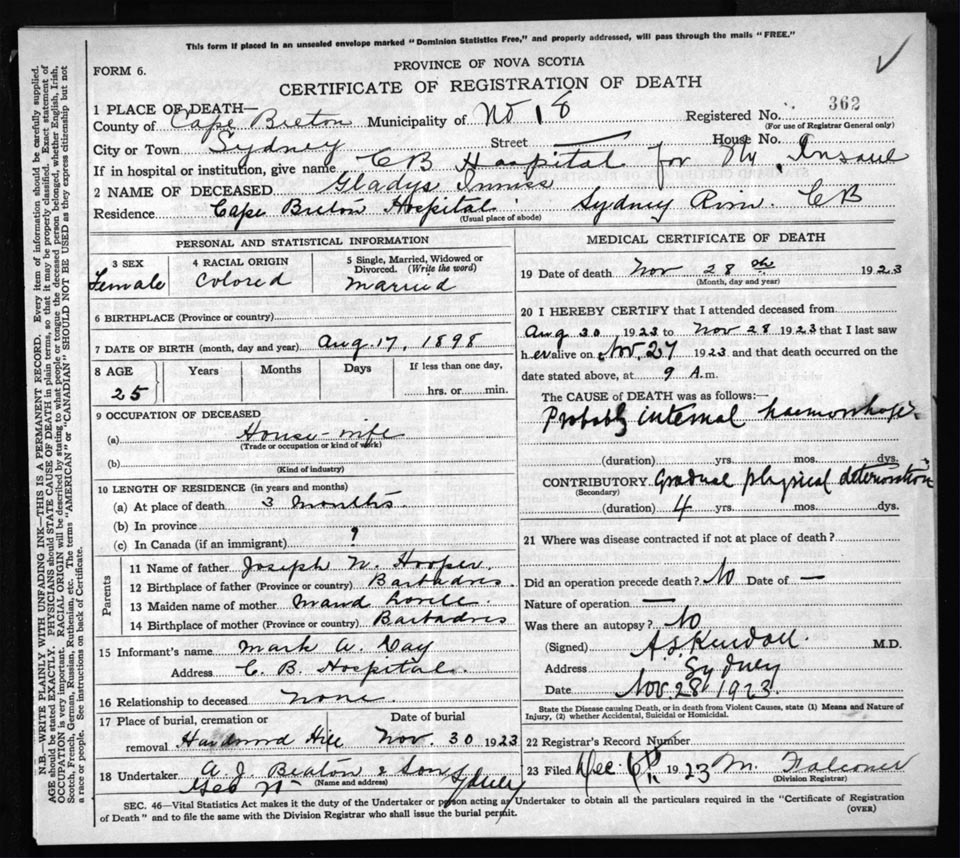 This form if placed in an unsealed envelope marked "Dominion Statistics Free," and properly addressed, will pass through the mails "FREE."
FORM 6.
PROVINCE OF NOVA SCOTIA
CERTIFICATE OF REGISTRATION OF DEATH
1 PLACE OF DEATH—
County of Cape Breton Municipality of No 18 Registered No. 362
(For use of Registrar General only)
City or Town Sydney Street — House No.
If in hospital or institution, give name CB Hospital for the Insane
2 NAME OF DECEASED Gladys Inniss
Residence Cape Breton Hospital Sydney River. CB
(Usual place of abode)
PERSONAL AND STATISTICAL INFORMATION
3 SEX Female
4 RACIAL ORIGIN Colored
5 Single, Married, Widowed or Divorced. (Write the word) Married
6 BIRTHPLACE (Province or country)
7 DATE OF BIRTH (month, day and year) Aug. 17, 1898
8 AGE Years Months Days If less than one day,
25 hrs. or min.
9 OCCUPATION OF DECEASED
(a) House-wife
(Trade or occupation or kind of work)
(b)
(Kind of industry)
10 LENGTH OF RESIDENCE (in years and months)
(a) At place of death 3 months.
(b) In province
(c) In Canada (if an immigrant) ?
Parents
11 Name of father Joseph N. Hooper.
12 Birthplace of father (Province or country) Barbados.
13 Maiden name of mother Maud Lovell.
14 Birthplace of mother (Province or country) Barbados
15 Informant's name Mark A. Day
Address C. B. Hospital.
16 Relationship to deceased none.
17 Place of burial, cremation or removal Hardwood Hill
Date of burial Nov. 30 1923
18 Undertaker A. J. Beaton & Son Sydney
(Name and address)
Geo
MEDICAL CERTIFICATE OF DEATH
19 Date of death Nov 28 the 1923
(Month, day and year)
20 I HEREBY CERTIFY that I attended deceased from
Aug 30 1923 to Nov 28 1923 that I last saw
her alive on Nov. 27 1923 and that death occurred on the
date stated above, at 9 A.m.
The CAUSE of DEATH was as follows:—
Probably internal haemorrhage
(duration) yrs. mos. dys.
CONTRIBUTORY Gradual physical deterioration
(Secondary)
(duration) 4 yrs. mos. dys.
21 Where was disease contracted if not at place of death?
Did an operation precede death? No Date of —
Nature of operation —
Was there an autopsy? No
(Signed) A.S. Kendall. M.D.
Address Sydney
Date Nov. 28 1923.
State the Disease causing Death, or in death from Violent Causes, state (1) Means and Nature of
Injury, (2) whether Accidental, Suicidal or Homicidal.
22 Registrar's Record Number
23 Filed Dec 6th 1923 M. Falconer
(Division Registrar)
SEC. 46—Vital Statistics Act makes it the duty of the Undertaker or person acting as Undertaker to obtain all the particulars required in the "Certificate of Registration
of Death" and to file the same with the Division Registrar who shall issue the burial permit.
(OVER)
N.B.—WRITE PLAINLY WITH UNFADING INK—THIS IS A PERMANENT RECORD. Every item of information should be carefully supplied.
AGE should be stated EXACTLY. PHYSICIANS should STATE CAUSE OF DEATH in plain terms, so that it may be properly classified. Exact statement of
OCCUPATION is very important. RACIAL ORIGIN will be described by stating to what people or tongue the deceased person belonged, whether English, Irish,
Scotch, French, German, Russian, Ruthenian, etc. The terms "AMERICAN" or "CANADIAN" SHOULD NOT BE USED as they express citizenship but not
a race or people. See instructions on back of Certificate.